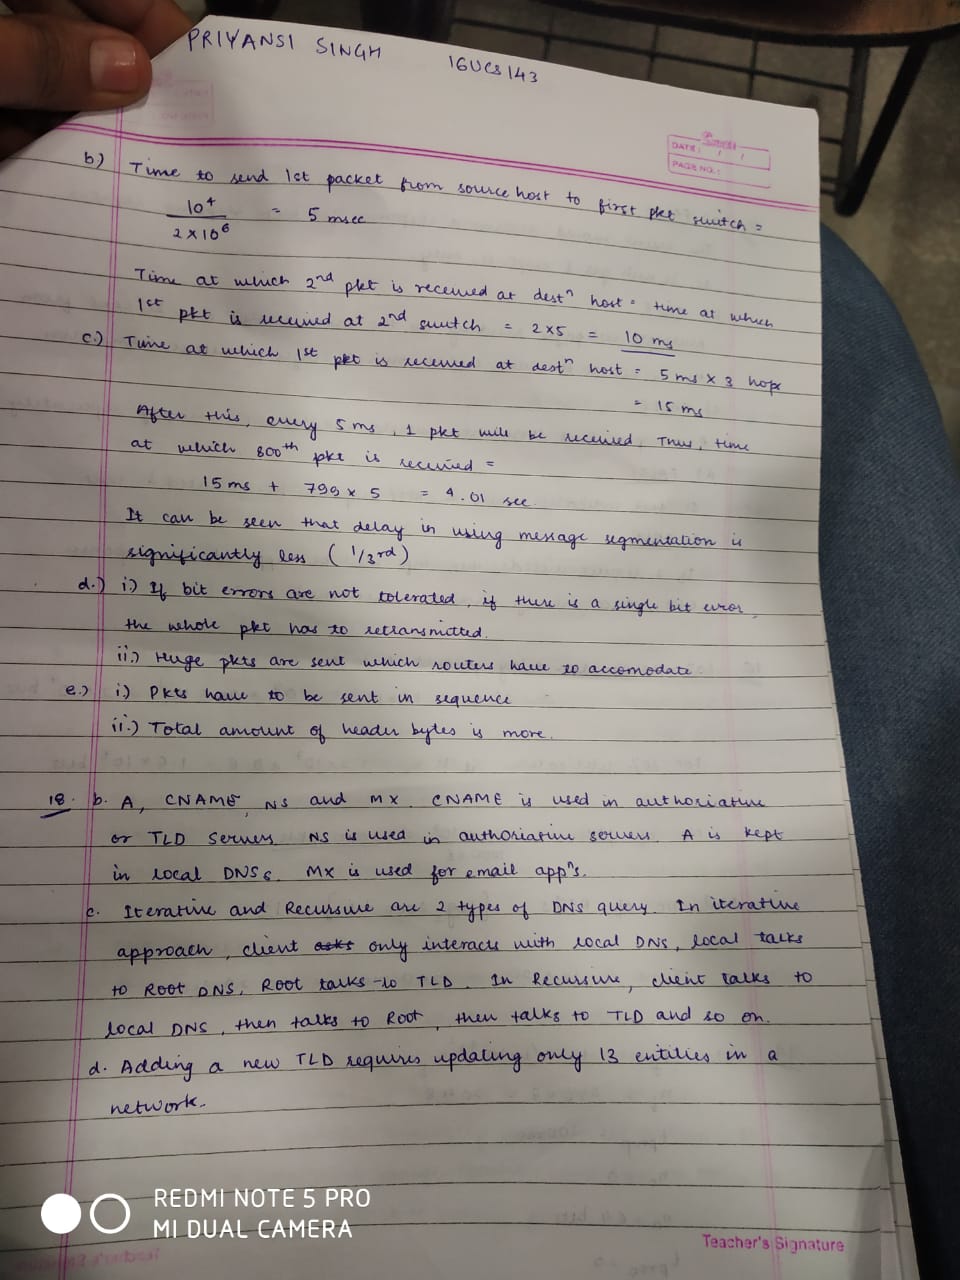 PRIYANSI SINGH 16UCS143
DATE: / /
PAGE NO.:
b) Time to send 1st packet from source host to first pkt switch =
10⁴ / 2 × 10⁶ = 5 msec
Time at which 2nd pkt is received at destⁿ host = time at which
1st pkt is received at 2nd switch = 2×5 = 10 ms
c.) Time at which 1st pkt is received at destⁿ host = 5 ms × 3 hops
= 15 ms
After this, every 5 ms, 1 pkt will be received. Thus, time
at which 800th pkt is received =
15 ms + 799 × 5 = 4.01 sec
It can be seen that delay in using message segmentation is
significantly less (1/3rd)
d.) i.) If bit errors are not tolerated, if there is a single bit error,
the whole pkt has to retransmitted.
ii.) Huge pkts are sent which routers have to accomodate.
e.) i) Pkts have to be sent in sequence
ii.) Total amount of header bytes is more.
18. b. A, CNAME, NS and MX. CNAME is used in authoriative
or TLD Servers. NS is used in authoriative servers. A is kept
in local DNSs. MX is used for email appⁿs.
c. Iterative and Recursive are 2 types of DNS query. In iterative
approach, client asks only interacts with local DNS, local talks
to Root DNS, Root talks to TLD. In Recursive, client talks to
local DNS, then talks to Root, then talks to TLD and so on.
d. Adding a new TLD requires updating only 13 entities in a
network.
REDMI NOTE 5 PRO
MI DUAL CAMERA
Teacher's Signature